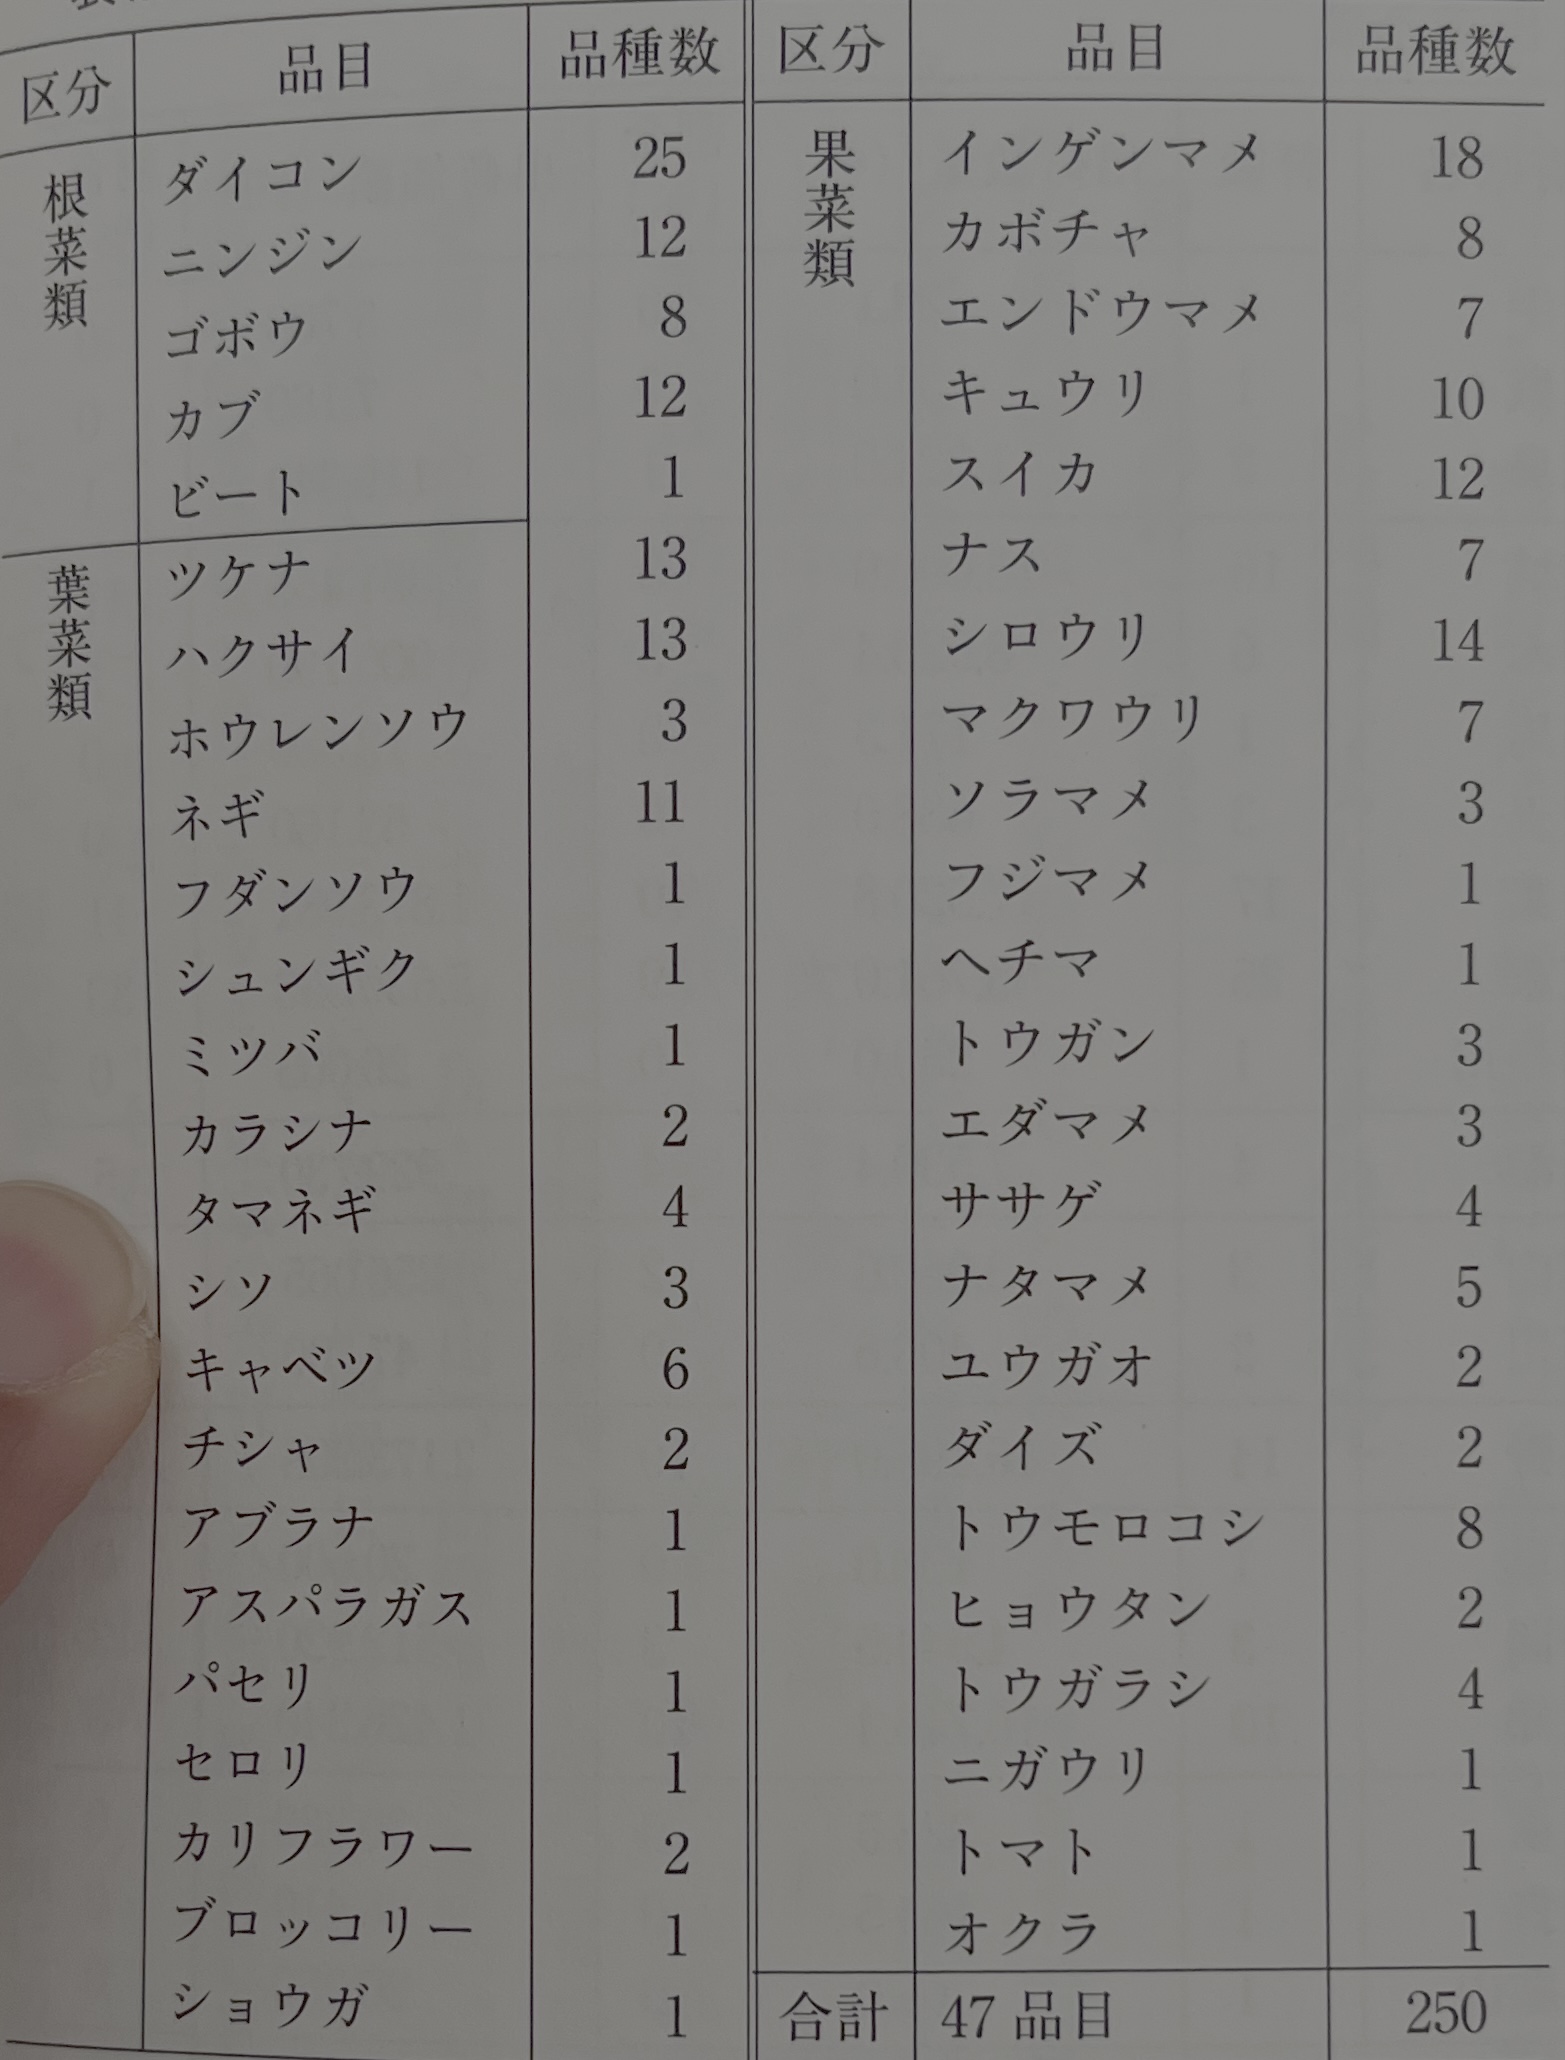 区分 品目 品種数
根菜類 ダイコン 25
ニンジン 12
ゴボウ 8
カブ 12
ビート 1
葉菜類 ツケナ 13
ハクサイ 13
ホウレンソウ 3
ネギ 11
フダンソウ 1
シュンギク 1
ミツバ 1
カラシナ 2
タマネギ 4
シソ 3
キャベツ 6
チシャ 2
アブラナ 1
アスパラガス 1
パセリ 1
セロリ 1
カリフラワー 2
ブロッコリー 1
ショウガ 1
区分 品目 品種数
果菜類 インゲンマメ 18
カボチャ 8
エンドウマメ 7
キュウリ 10
スイカ 12
ナス 7
シロウリ 14
マクワウリ 7
ソラマメ 3
フジマメ 1
ヘチマ 1
トウガン 3
エダマメ 3
ササゲ 4
ナタマメ 5
ユウガオ 2
ダイズ 2
トウモロコシ 8
ヒョウタン 2
トウガラシ 4
ニガウリ 1
トマト 1
オクラ 1
合計 47品目 250